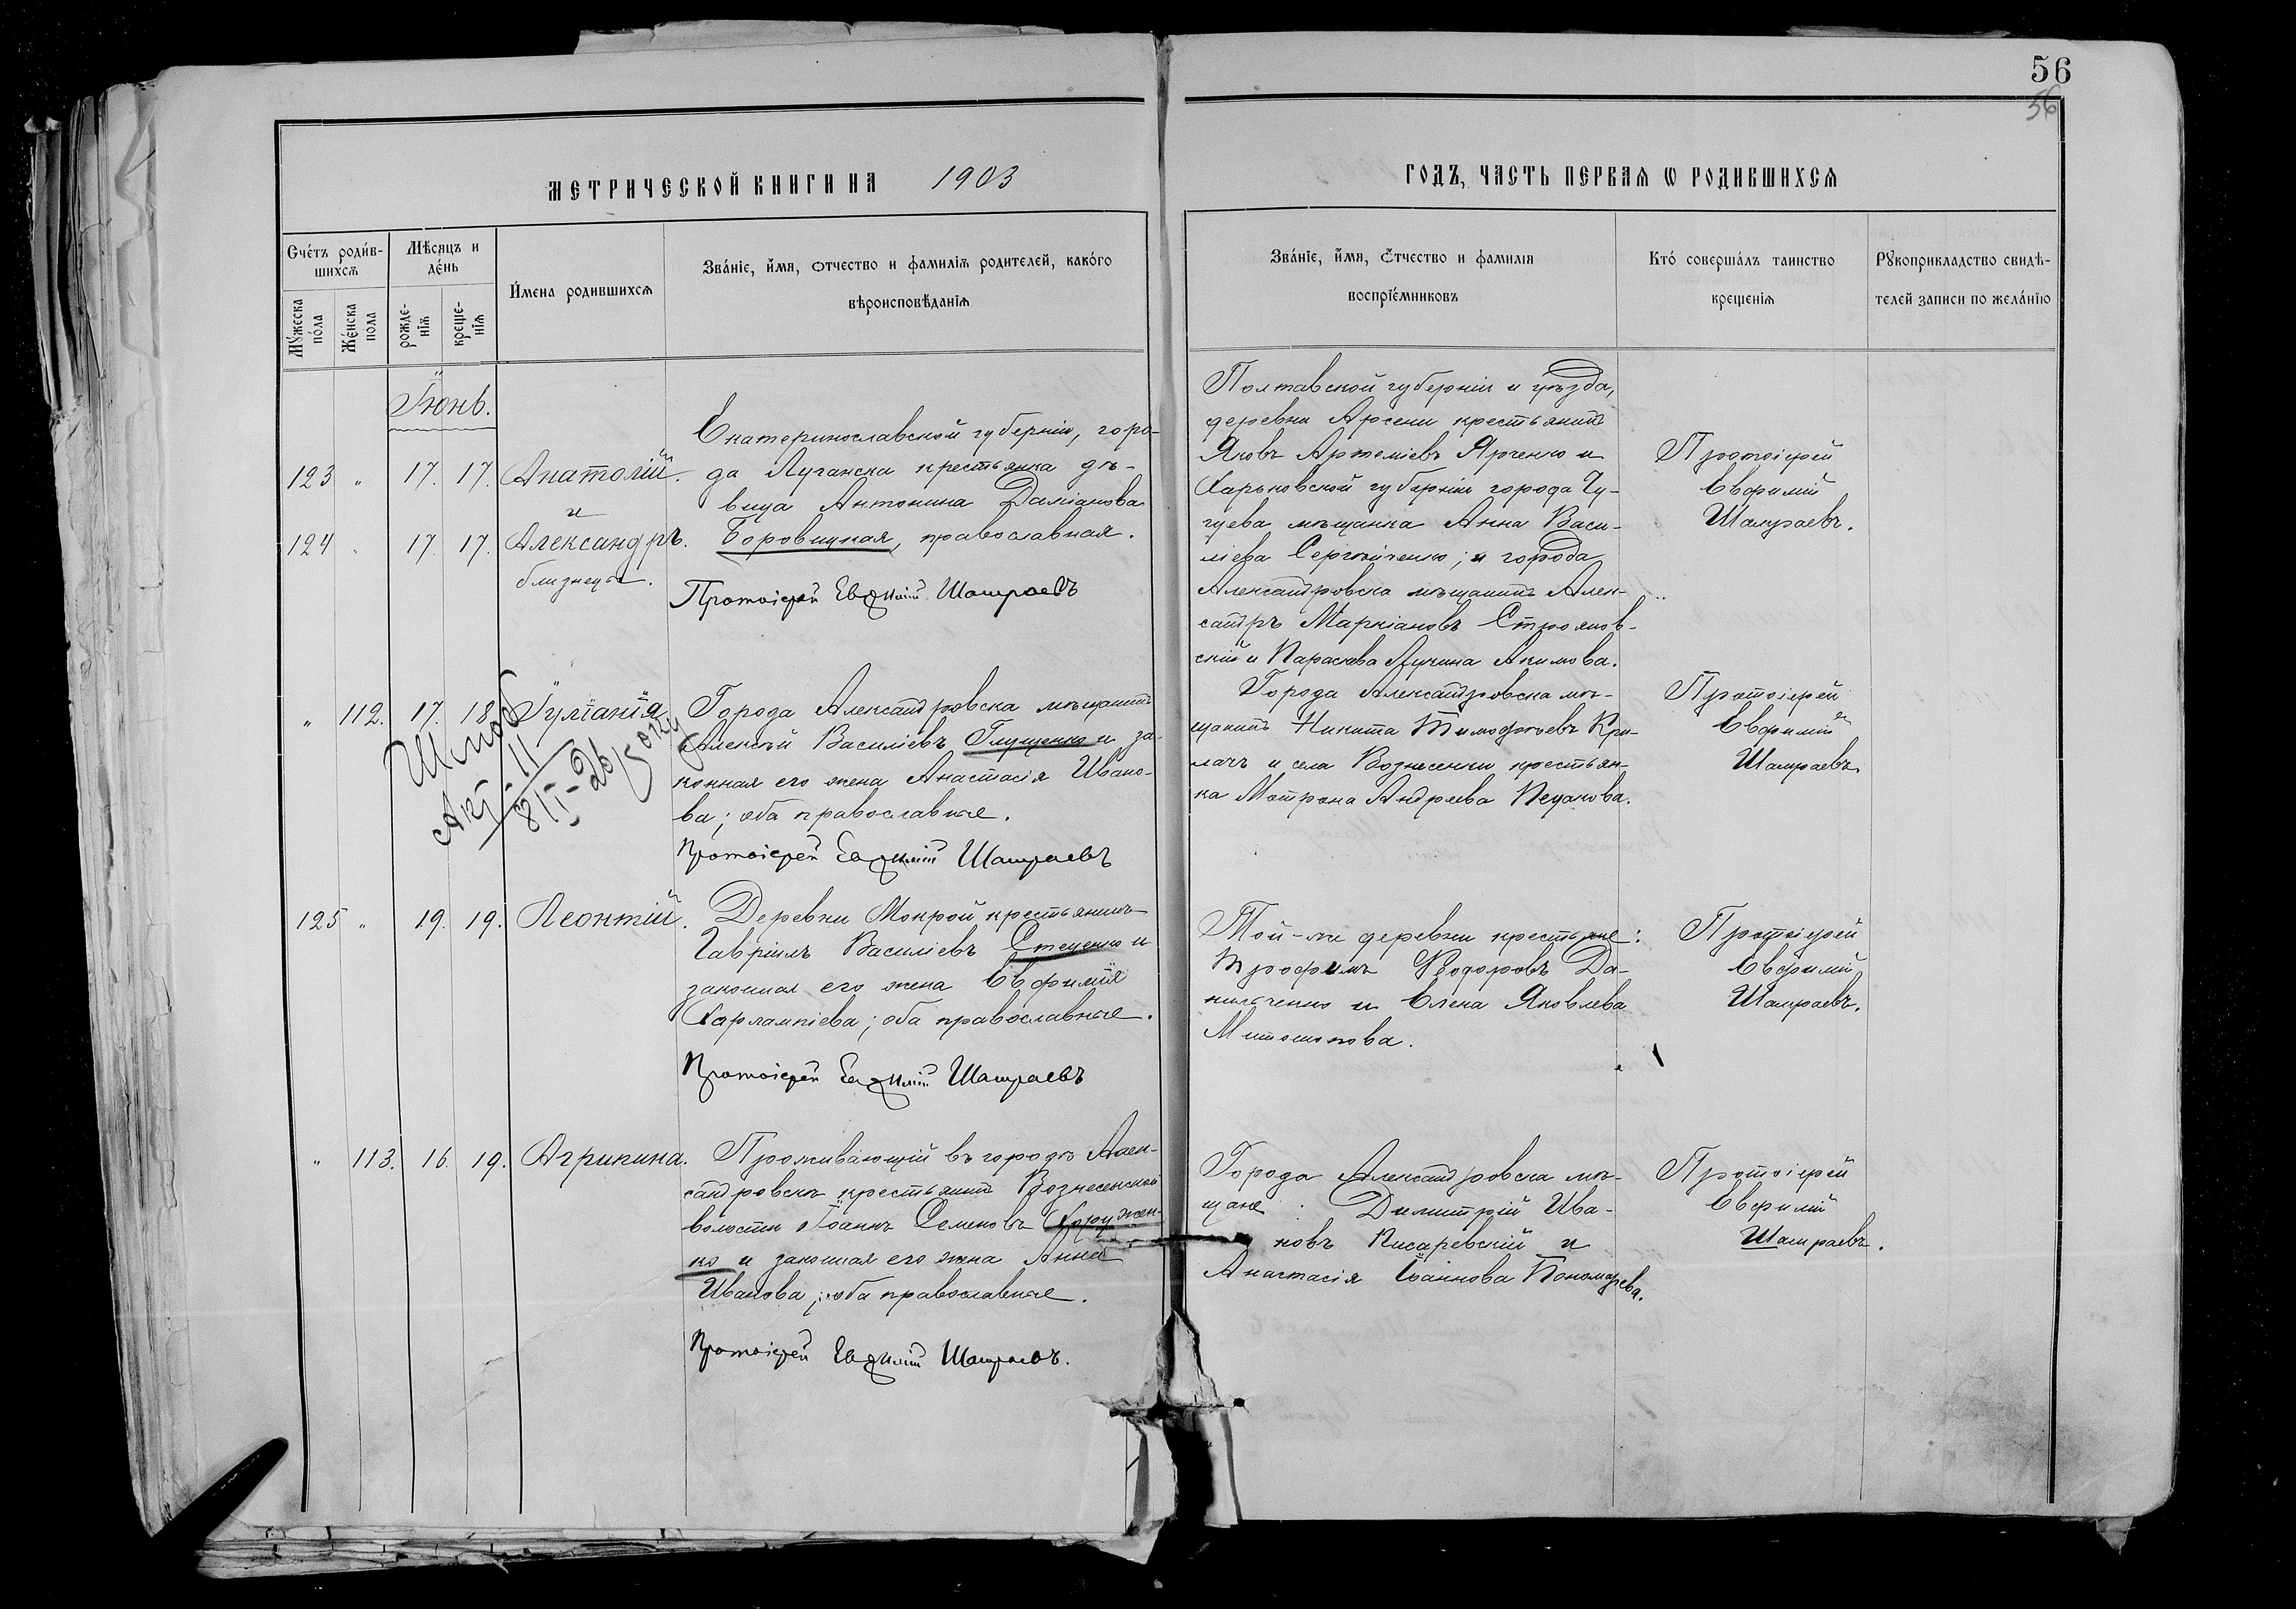 56
56
МЕТРИЧЕСКОЙ КНИГИ НА 1903
ГОДЪ, ЧАСТЬ ПЕРВАЯ Ѡ РОДИВШИХСЯ
Счетъ родив-
шихся
Мѣсяцъ и
день
Имена родившихся
Званіе, имя, отчество и фамилія родителей, какого
вѣроисповѣданія
Мужеска
пола
Женска
пола
рожде-
нія
креще-
нія
Званіе, имя, отчество и фамилія
воспріемниковъ
Кто совершалъ таинство
крещенія
Рукоприкладство свидѣ-
телей записи по желанію
Іюнь.
123 " 17. 17. Анатолій.
и
124 " 17. 17. Александръ.
близнецы.
Екатеринославской губерніи, горо-
да Луганска крестьянка дѣ-
вица Антонина Даміанова
Боровицкая, православная.
Протоіерей Евфимій Шамраевъ
Полтавской губерніи и уѣзда,
деревни Арсени крестьянинъ
Яковъ Артеміевъ Ярченко и
Харьковской губерніи города Чу-
гуева мѣщанка Анна Васи-
ліева Сергѣйченко; и города
Александровска мѣщанинъ Алек-
сандръ Маркіановъ Строянов-
скій и Параскева Лукина Акимова.
Протоіерей
Евфимій
Шамраевъ.
" 112. 17. 18 Іуліанія
Шлюб
Акт 11
8/II-26 року
Города Александровска мѣщанинъ
Алексѣй Василіевъ Глущенко и за-
конная его жена Анастасія Ивано-
ва; оба православные.
Протоіерей Евфимій Шамраевъ
Города Александровска мѣ-
щанинъ Никита Тимофѣевъ Кри-
лачъ и села Вознесенки крестьян-
ка Матрона Андреева Пецакова.
Протоіерей
Евфимій
Шамраевъ
125 " 19. 19. Леонтій.
Деревни Мокрой крестьянинъ
Гавріилъ Василіевъ Стеценко и
законная его жена Евфимія
Харлампіева; оба православные.
Протоіерей Евфимій Шамраевъ
Той-же деревни крестьяне:
Трофимъ Ѳедоровъ Да-
нильченко и Елена Яковлева
Митошопова.
Протоіерей
Евфимій
Шамраевъ.
" 113. 16. 19. Агрипина.
Проживающій въ городѣ Алек-
сандровскѣ крестьянинъ Вознесенской
волости Іоаннъ Семеновъ Хоружен-
ко и законная его жена Анна
Иванова; оба православные.
Протоіерей Евфимій Шамраевъ.
Города Александровска мѣ-
щане: Димитрій Ива-
новъ Писаревскій и
Анастасія Іоаннова Пономарева.
Протоіерей
Евфимій
Шамраевъ.